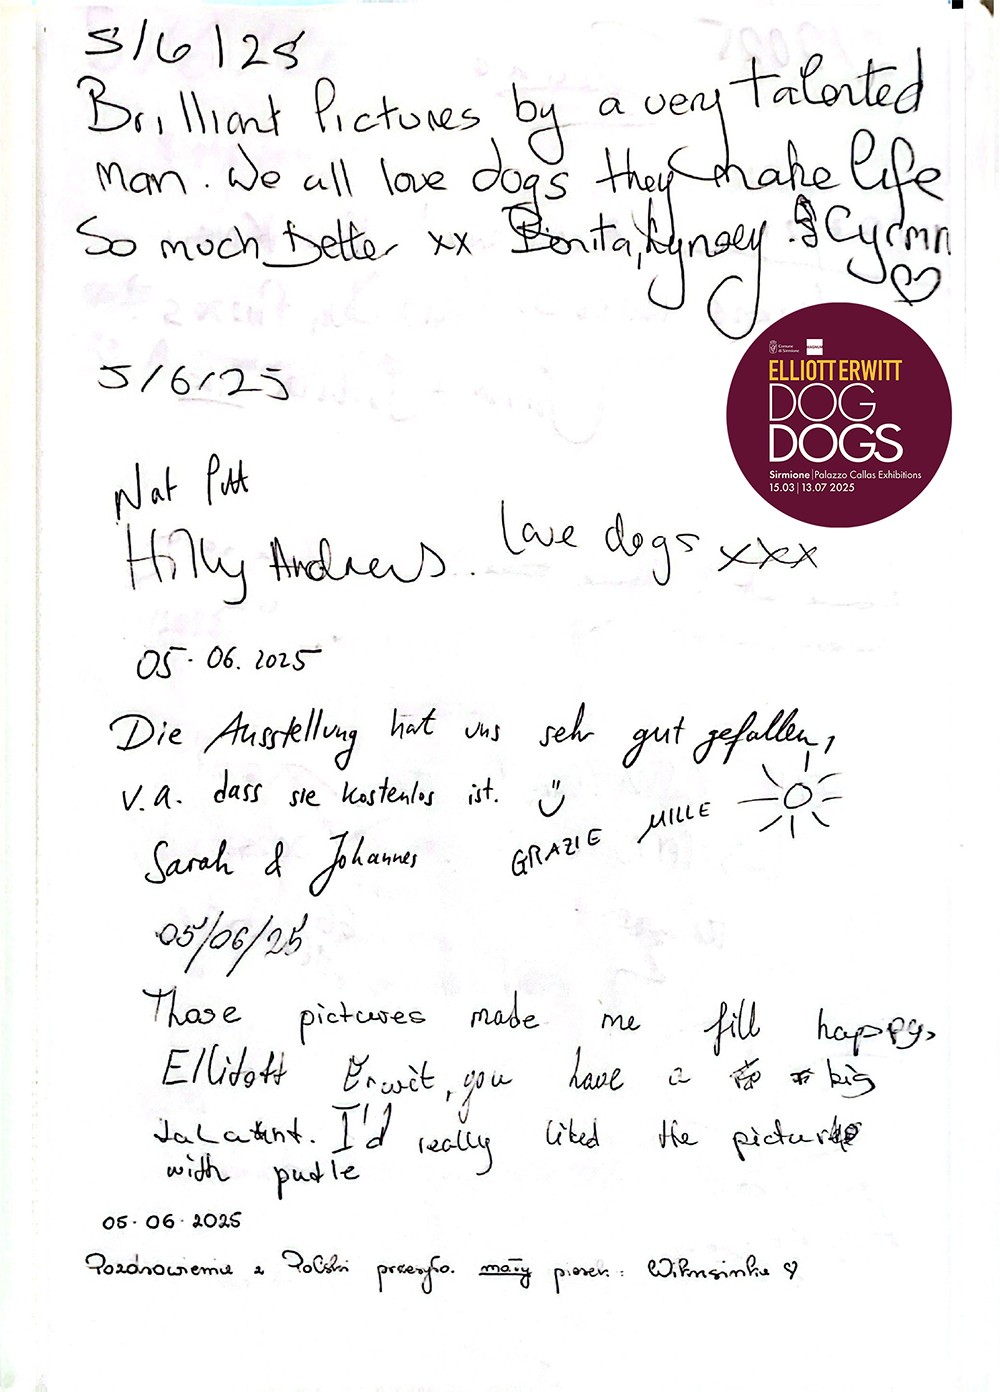 5/6/25
Brilliant Pictures by a very talented
man. We all love dogs they make life
So much Better xx Bonita, Lynsey.
5/6/25
Nat Pitt
Hilly Andrews. Love dogs xxx
05.06.2025
Die Ausstellung hat uns sehr gut gefallen,
v.a. dass sie kostenlos ist.
Sarah & Johannes GRAZIE MILLE
05/06/25
Those pictures made me fill happy,
Elliott Erwit, you have a big
talant. I'd really liked the picture
with pudle
05.06.2025
Pozdrowienia z Polski przesyła mały piesek:
Comune
di Sirmione
MAGNUM
ELLIOTT ERWITT
DOG
DOGS
Sirmione | Palazzo Callas Exhibitions
15.03 | 13.07 2025